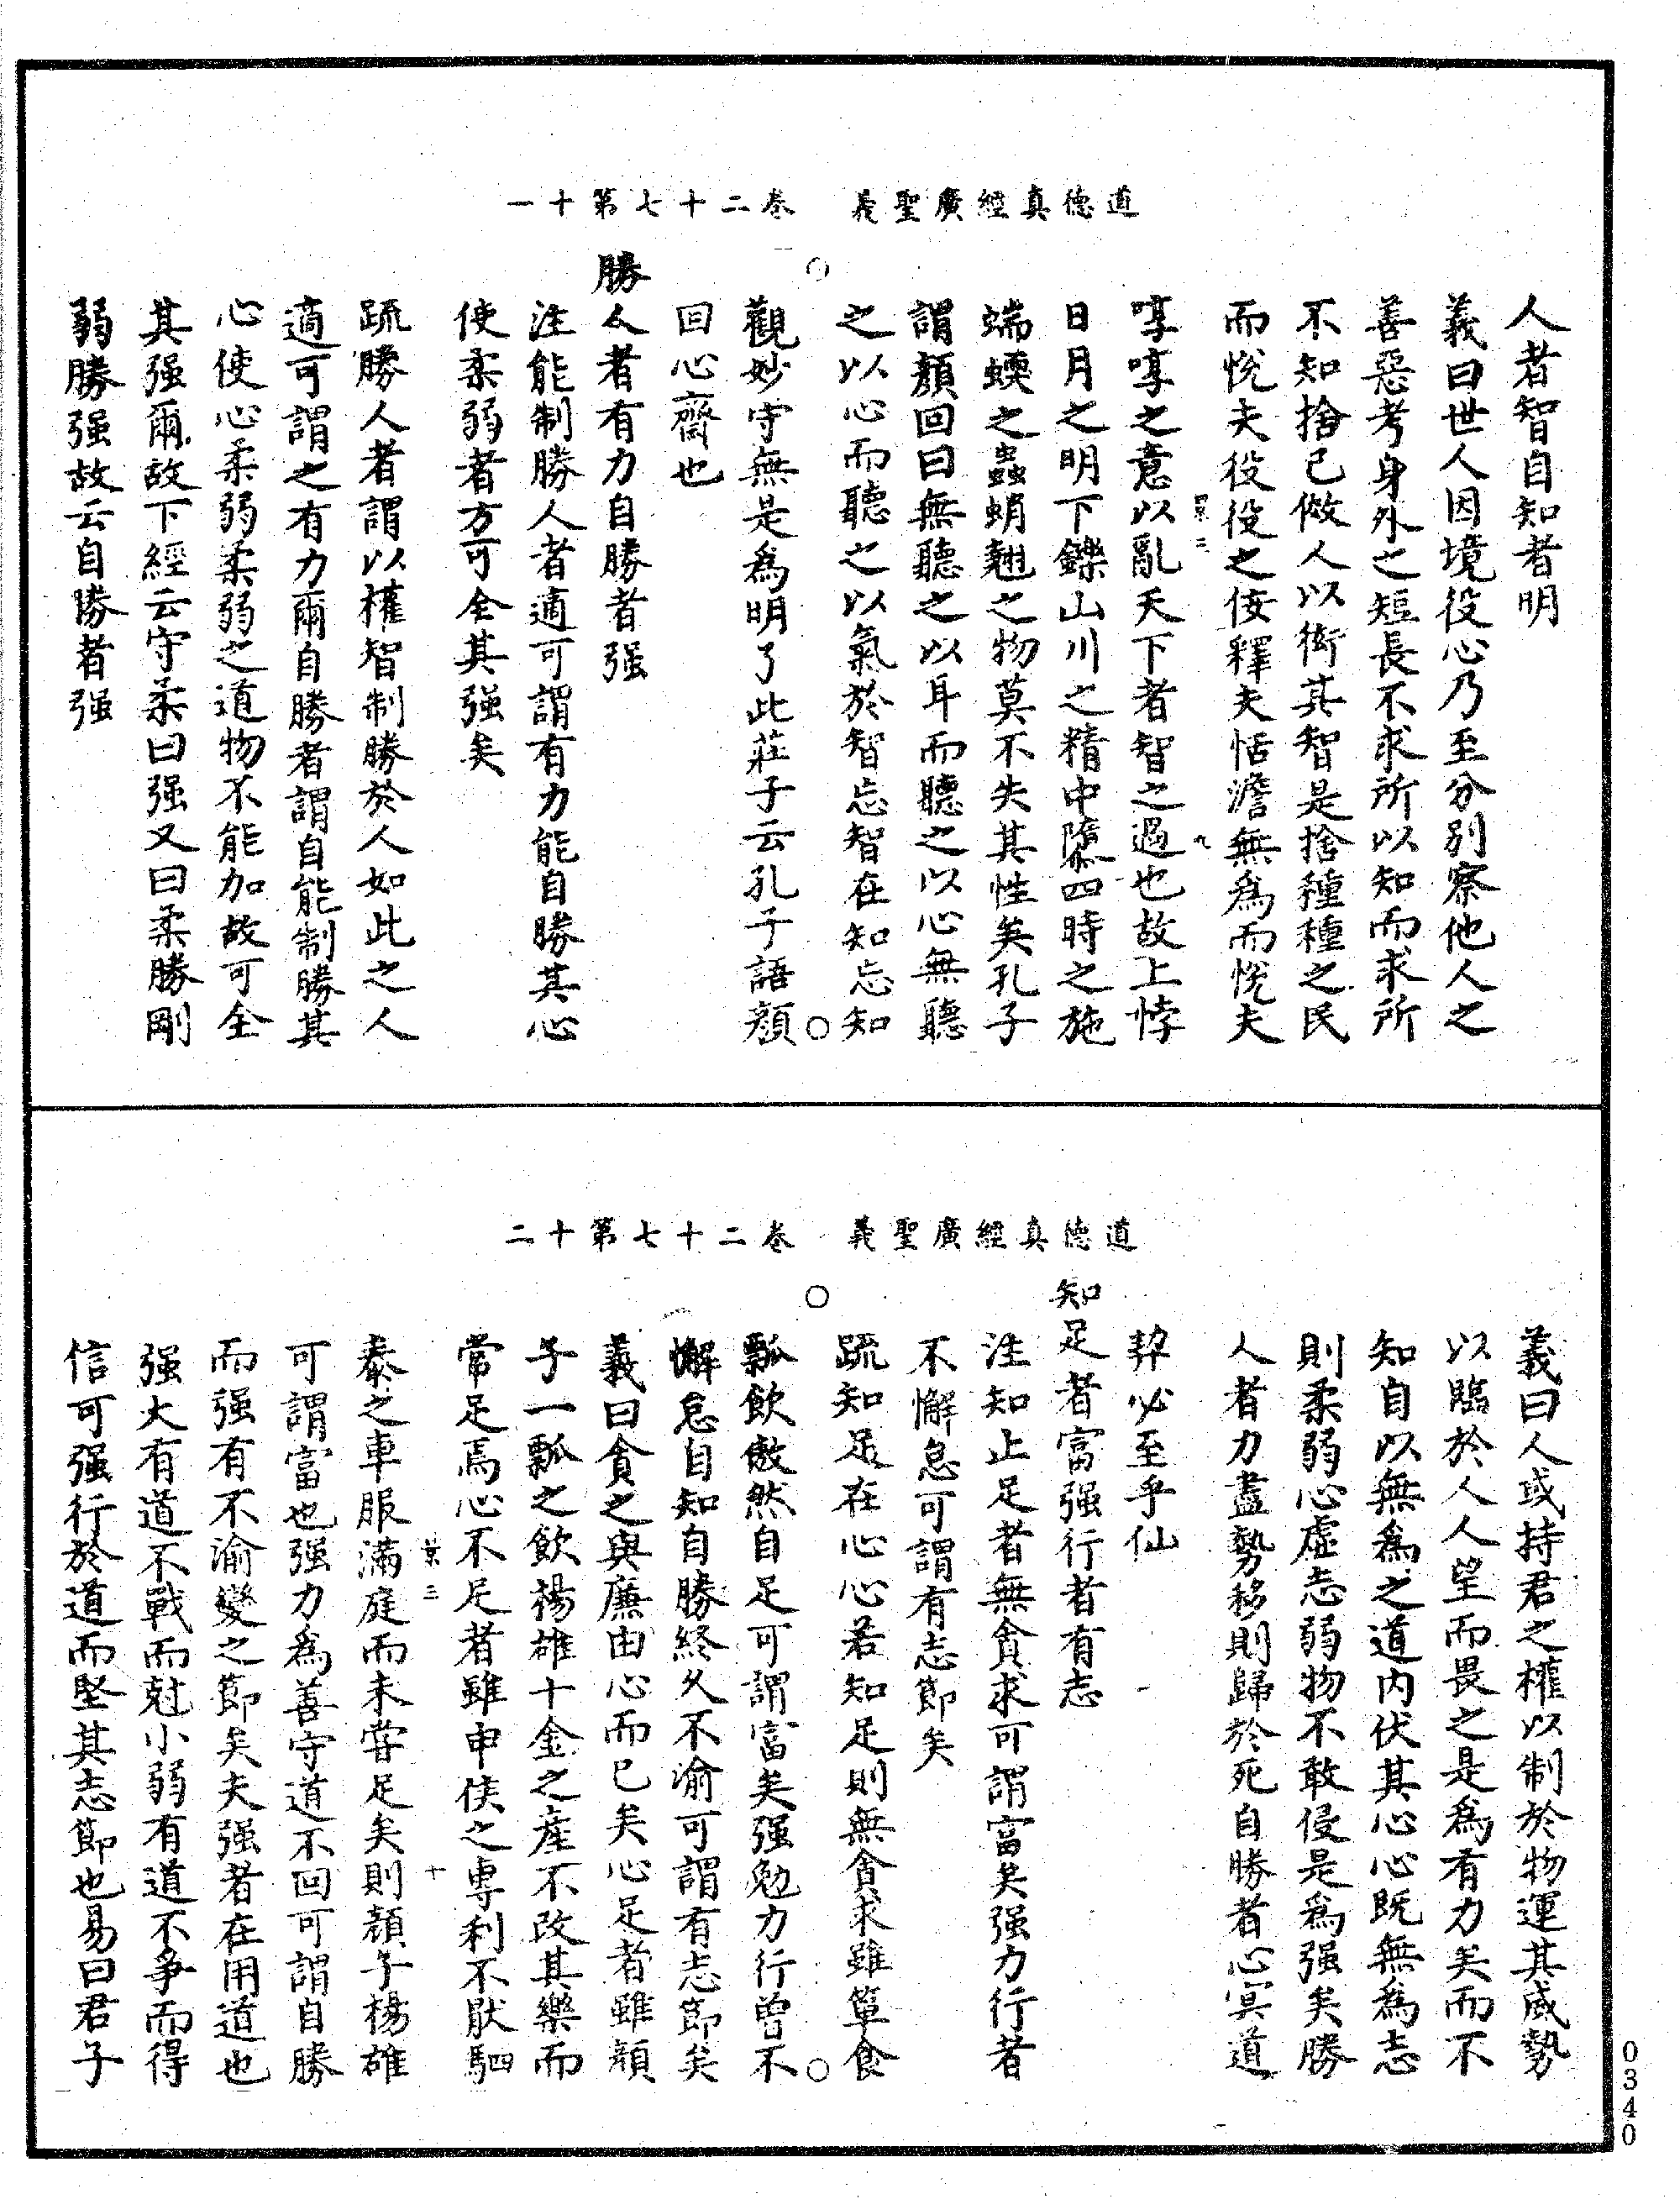 道德真經廣聖義　卷二十七第十一
人者智自知者明
義曰世人因境役心乃至分別察他人之
善惡考身外之短長不求所以知而求所
不知捨己傚人以衒其智是捨種種之民
而悅夫役役之佞釋夫恬澹無爲而悅夫
啍啍之意以亂天下者智之過也故上悖
日月之明下鑠山川之精中隳四時之施
蝡之蟲蛸翹之物莫不失其性矣孔子
謂顏回曰無聽之以耳而聽之以心無聽
之以心而聽之以氣於智忘智在知忘知
觀妙守無是爲明了此莊子云孔子語顏
回心齋也
勝人者有力自勝者强
注能制勝人者適可謂有力能自勝其心
使柔弱者方可全其强矣
疏勝人者謂以權智制勝於人如此之人
適可謂之有力爾自勝者謂自能制勝其
心使心柔弱柔弱之道物不能加故可全
其强爾故下經云守柔曰强又曰柔勝剛
弱勝强故云自勝者强
道德真經廣聖義　卷二十七第十二
義曰人或持君之權以制於物運其威勢
以臨於人人望而畏之是爲有力矣而不
知自以無爲之道內伏其心心既無爲志
則柔弱心虛志弱物不敢侵是爲强矣勝
人者力盡勢移則歸於死自勝者心冥道
契必至乎仙
知足者富强行者有志
注知止足者無貪求可謂富矣强力行者
不懈怠可謂有志節矣
疏知足在心心若知足則無貪求雖簞食
瓢飲傲然自足可謂富矣强勉力行曾不
懈怠自知自勝終久不渝可謂有志節矣
義曰貪之與廉由心而已矣心足者雖顏
子一瓢之飲楊雄十金之產不改其樂而
常足焉心不足者雖申侯之專利不猒駟
秦之車服滿庭而未嘗足矣則顏子楊雄
可謂富也强力爲善守道不回可謂自勝
而强有不渝變之節矣夫强者在用道也
强大有道不戰而尅小弱有道不爭而得
信可强行於道而堅其志節也易曰君子
0340